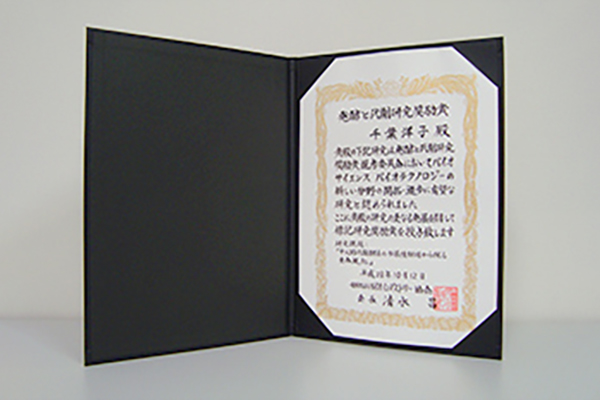 発酵と代謝研究奨励賞
千葉洋子 殿
貴殿の下記研究は発酵と代謝研究
奨励賞選考委員会においてバイオ
サイエンス バイオテクノロジーの
新しい分野の開拓・進歩に有望な
研究と認められました
ここに貴殿の研究の更なる発展を期して
標記研究奨励賞を授与致します
研究課題:
平成 年10月12日
会長 清水 昌